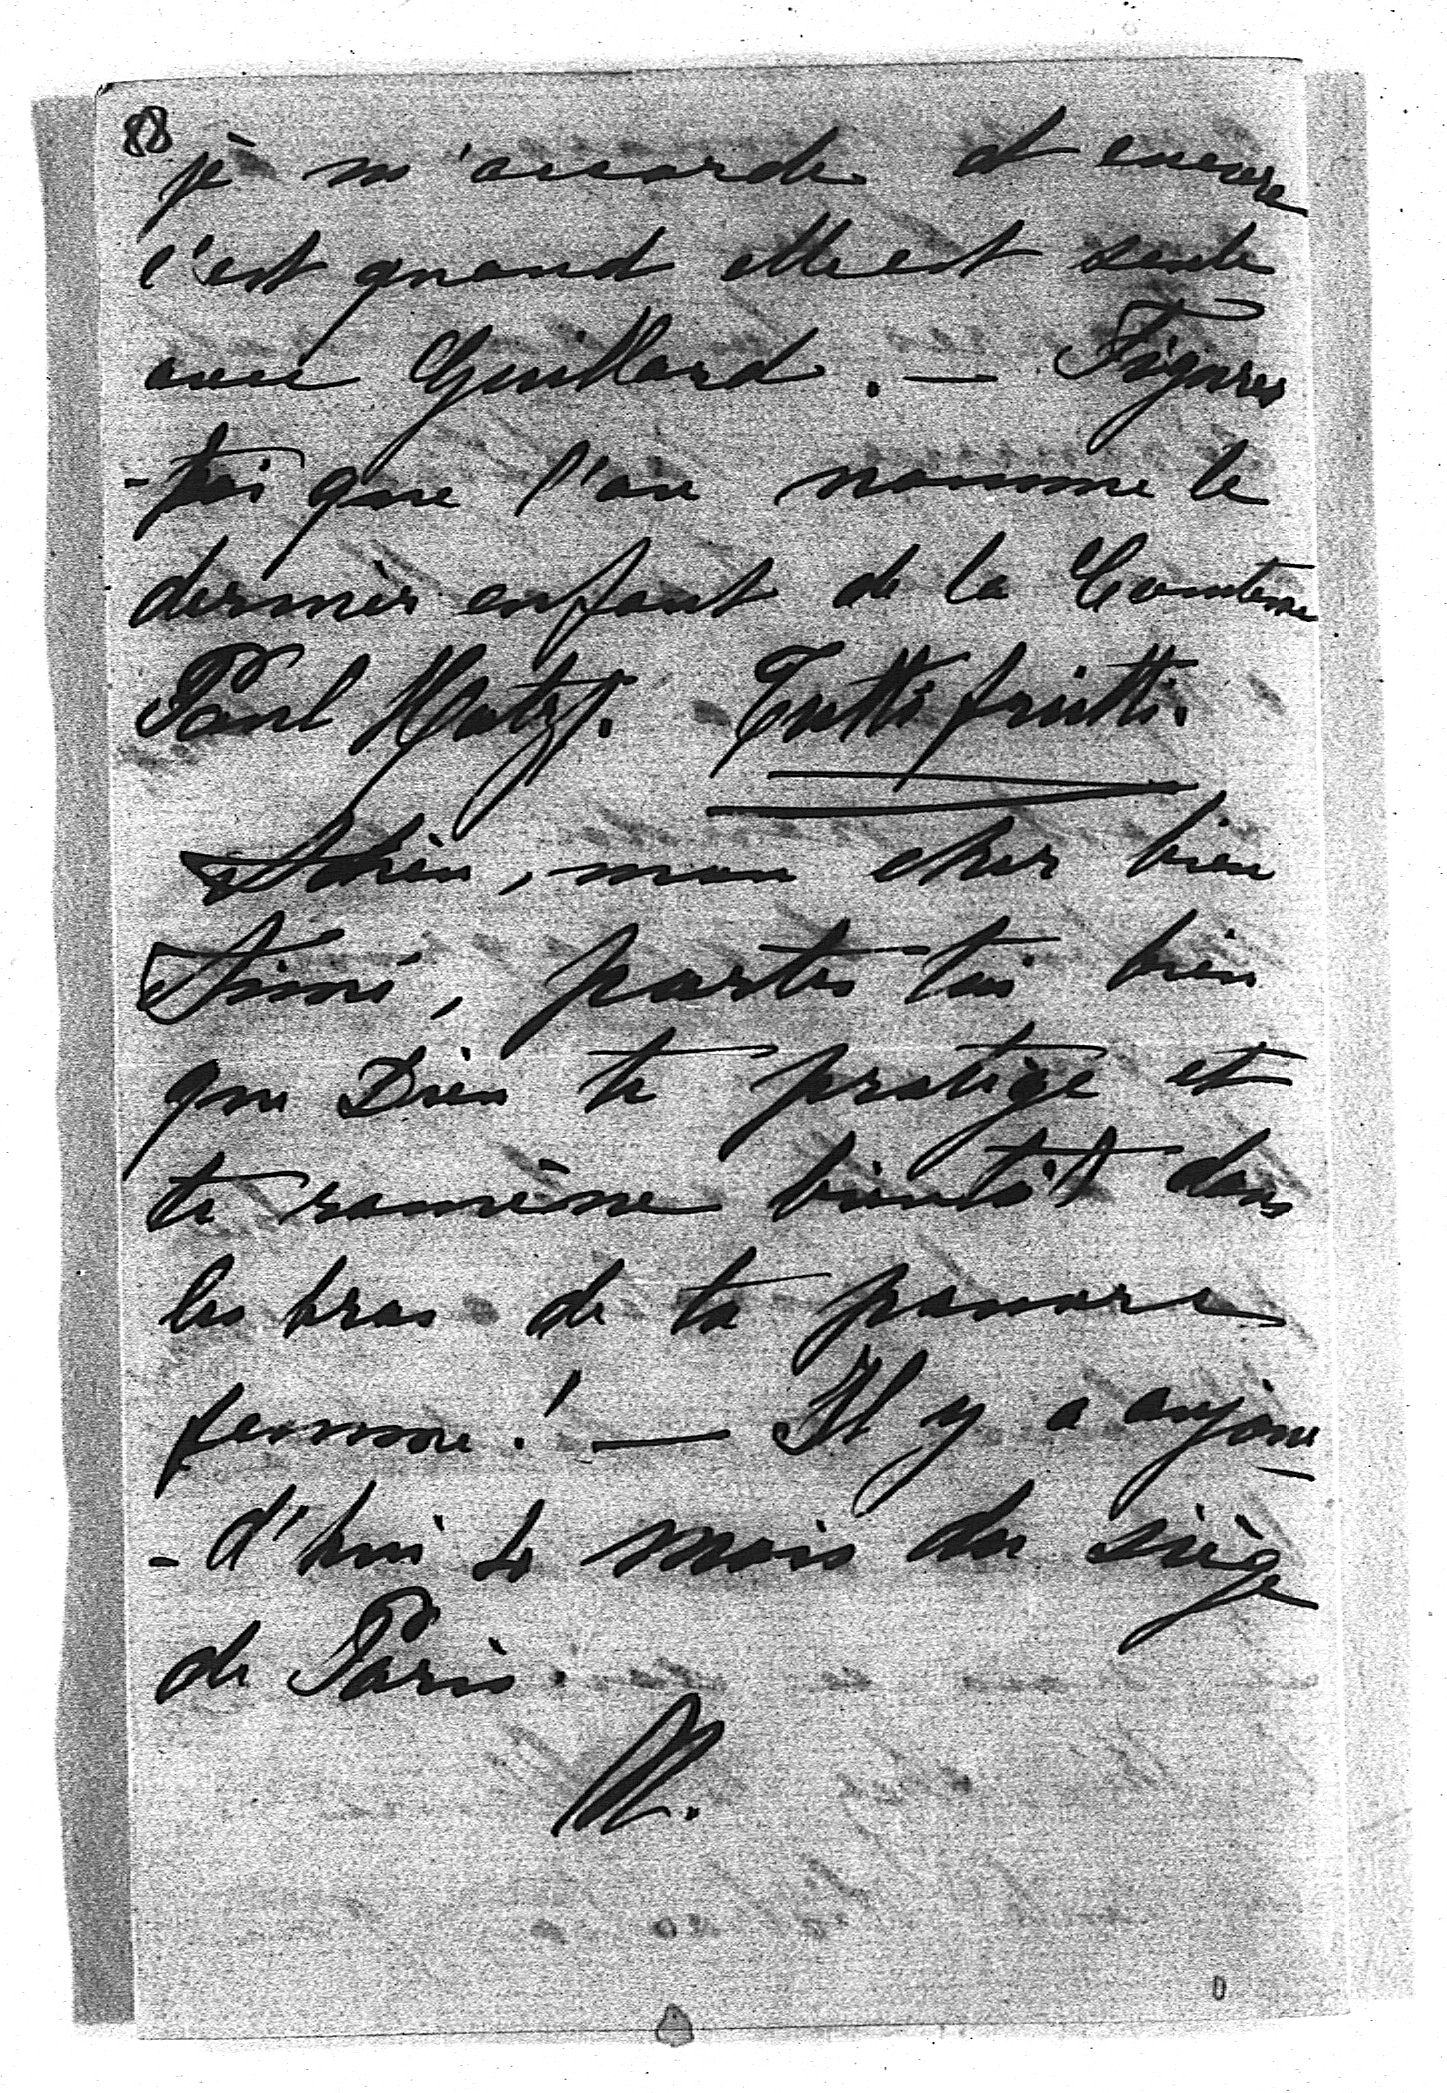 88
je m'accorde et encore
c'est quand elle est seule
avec Guillard. — Figures
-toi que l'on nomme le
dernier enfant de la Comtesse
Paul Hatzf. Tutti frutti.
Adieu, mon cher bien
Aimé, portes toi bien
que Dieu te protège et
te ramène bientôt dans
les bras de ta pauvre
femme! — Il y a aujour
-d'hui 4 mois du siège
de Paris.